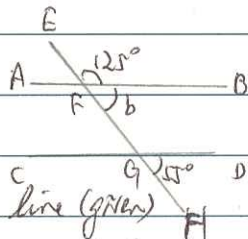 E
125°
A B
F b
C G 55° D
line (given)
H